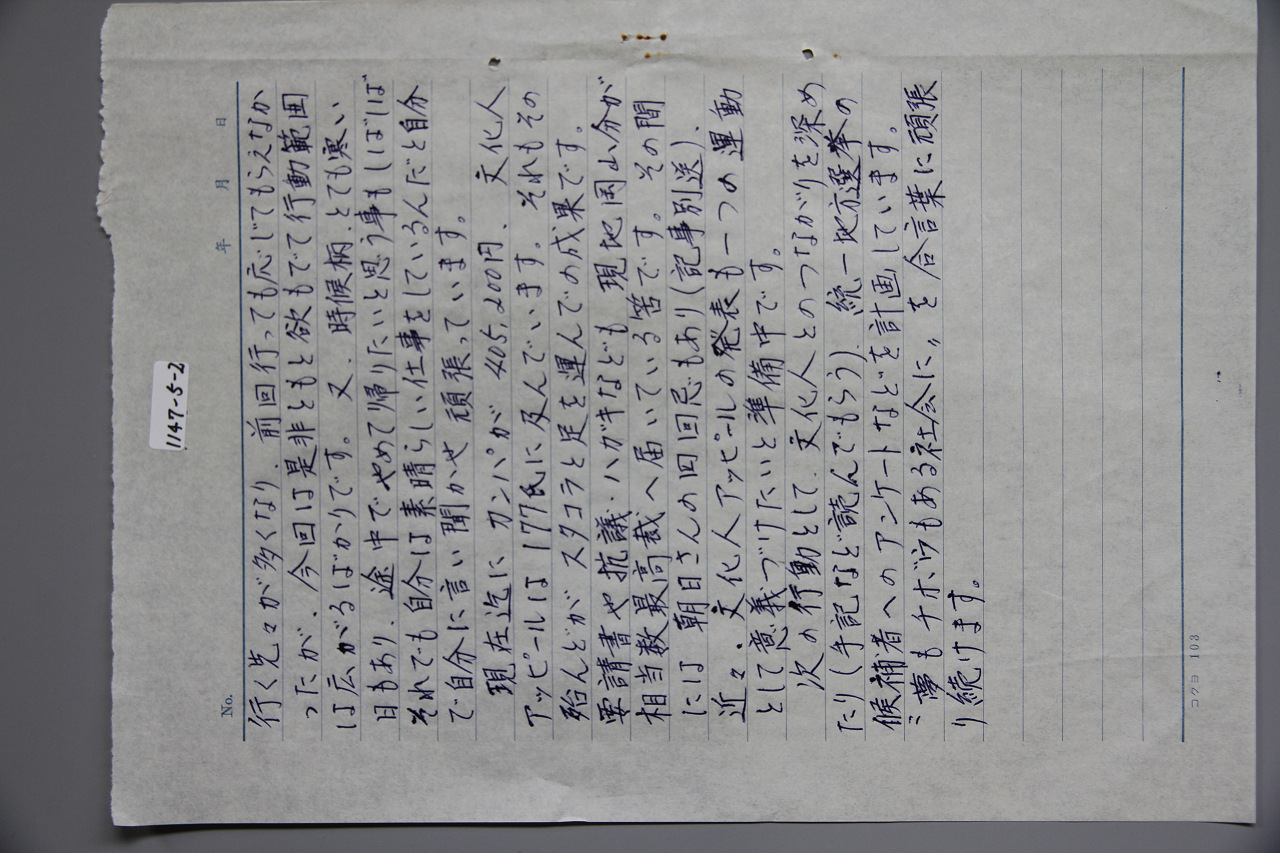 1147-5-2
No.
年 月 日
行く先々が多くなり、前回行っても応じてもらえなか
ったが、今回は是非ともと欲もでて行動範囲
は広がるばかりです。又、時候柄、とても寒い
日もあり、途中でやめて帰りたいと思う事もしばしば
それでも自分は素晴らしい仕事をしているんだと自分
で自分に言い聞かせ頑張っています。
現在迄に カンパが 405,200円、文化人
アッピールは177氏に及んでいます。それもその
殆んどが スタコラと足を運んでの成果です。
要請書や抗議・ハガキなども 現地岡山分が
相当数最高裁へ届いている筈です。その間
には 朝日さんの四回忌もあり(記事別送)、
近々、文化人アッピールの発表も一つの運動
として意義づけたいと準備中です。
次の行動として、文化人とのつながりを深め
たり(手記など読んでもらう)、統一地方選挙の
候補者へのアンケートなどを計画しています。
〝夢もチボウもある社会に〟を合言葉に頑張
り続けます。
コクヨ 103